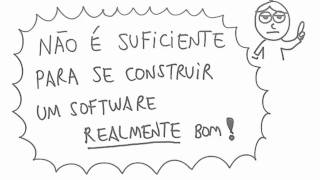 NÃO É SUFICIENTE
PARA SE CONSTRUIR
UM SOFTWARE
REALMENTE BOM!